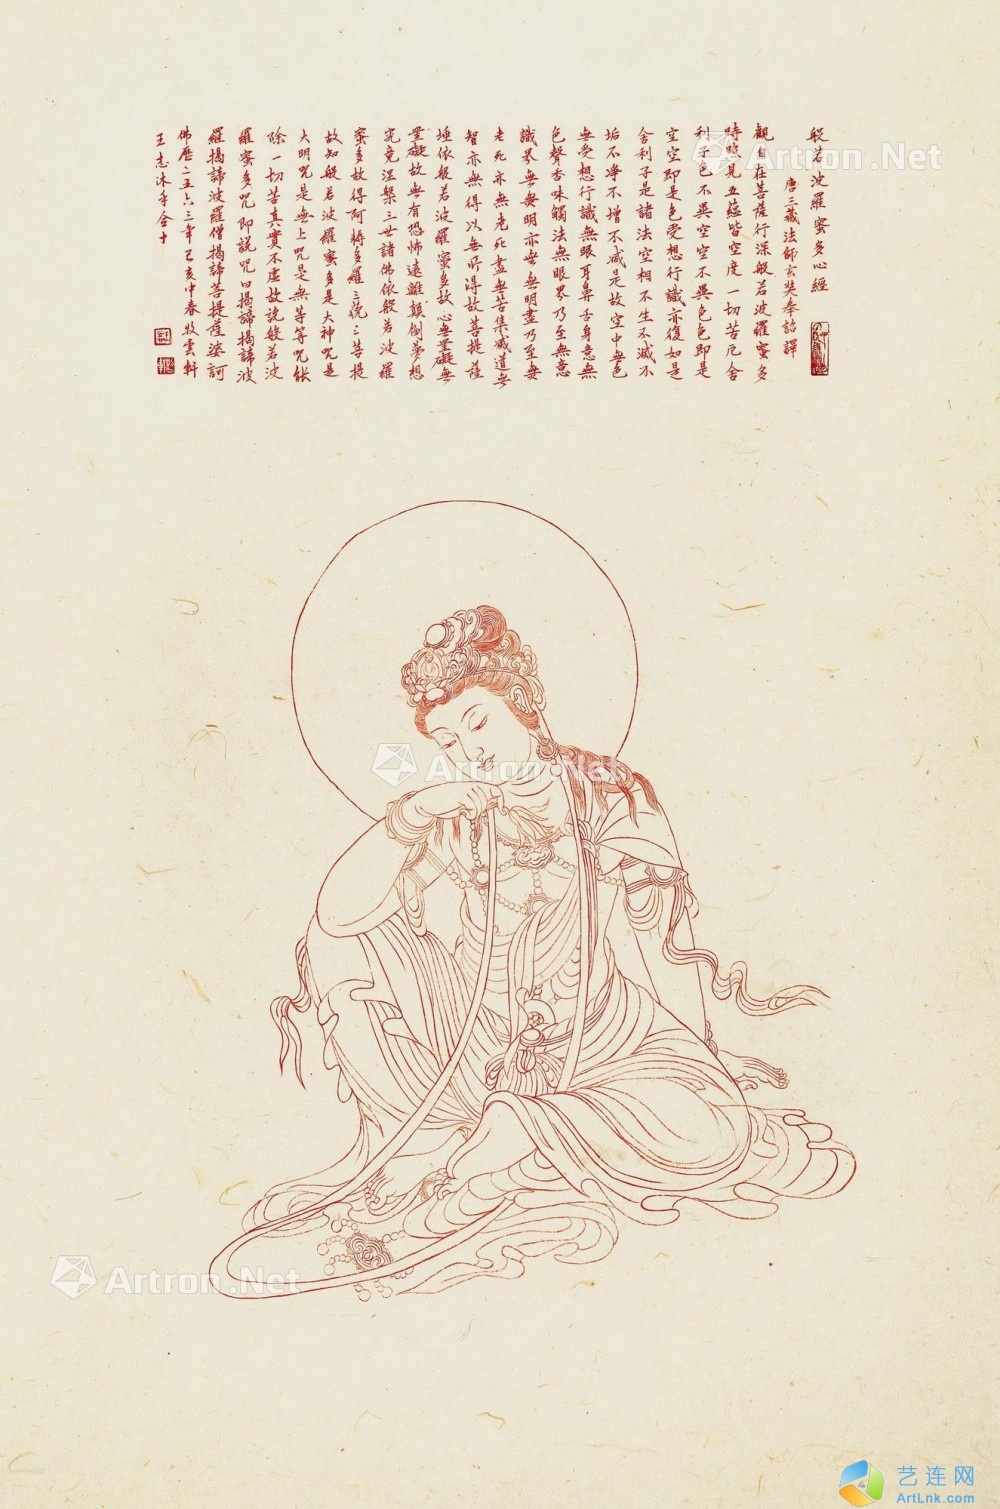 般若波羅蜜多心經
唐三藏法師玄奘奉詔譯
觀自在菩薩行深般若波羅蜜多
時照見五蘊皆空度一切苦厄舍
利子色不異空空不異色色即是
空空即是色受想行識亦復如是
舍利子是諸法空相不生不滅不
垢不淨不增不減是故空中無色
無受想行識無眼耳鼻舌身意無
色聲香味觸法無眼界乃至無意
識界無無明亦無無明盡乃至無
老死亦無老死盡無苦集滅道無
智亦無得以無所得故菩提薩
埵依般若波羅蜜多故心無罣礙無
罣礙故無有恐怖遠離顛倒夢想
究竟涅槃三世諸佛依般若波羅
蜜多故得阿耨多羅三藐三菩提
故知般若波羅蜜多是大神咒是
大明咒是無上咒是無等等咒能
除一切苦真實不虛故說般若波
羅蜜多咒即說咒曰揭諦揭諦波
羅揭諦波羅僧揭諦菩提薩婆訶
佛曆二五六三年己亥中春牧雲軒
王志沐手合十
Artron.Net
Artron.Net
Artron.Net
艺连网
ArtLnk.com